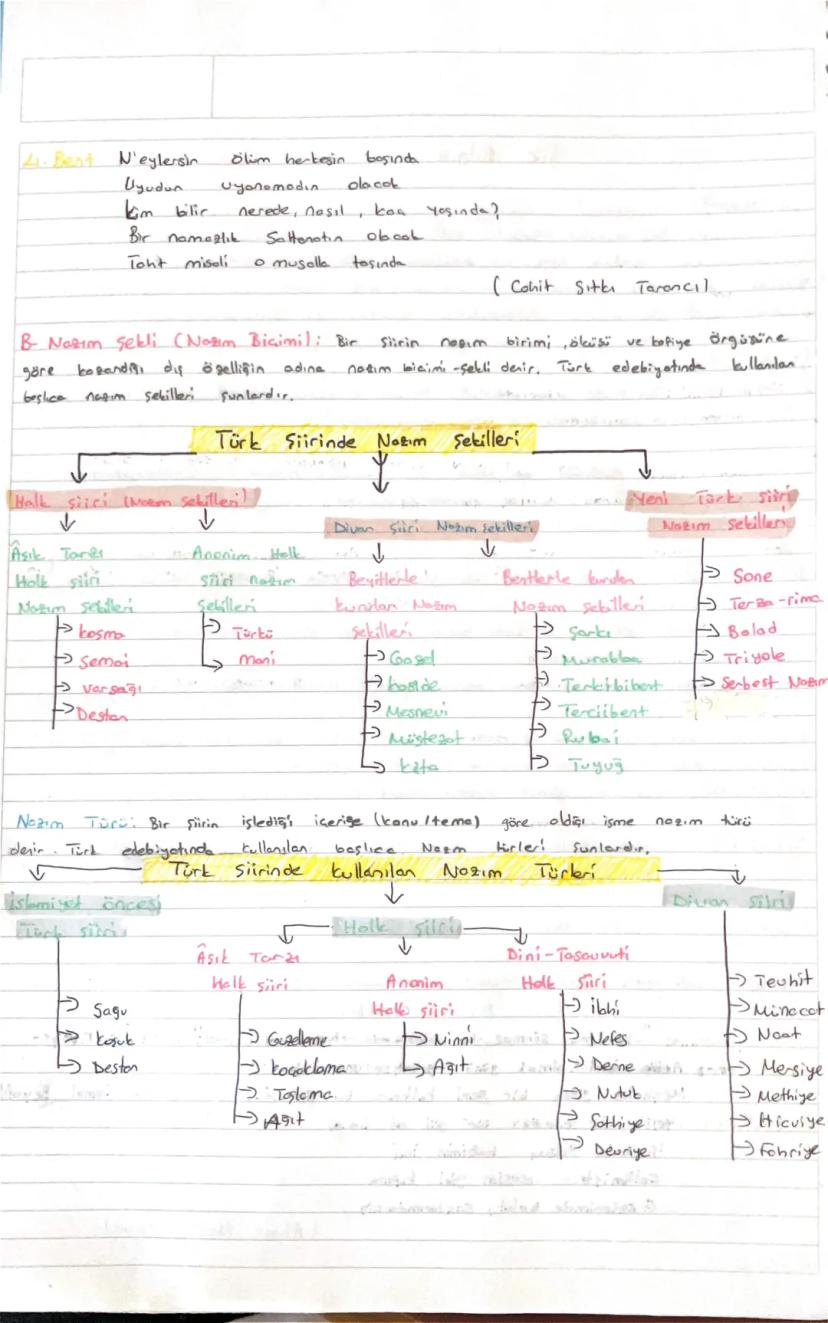 4. Bent N'eylersin ölüm herkesin başında
Uyudun uyanamadın olacak
Kim bilir nerede, nasıl, kaç yaşında?
Bir namazlık Saltanatın olacak
Taht misali o musalla taşında
( Cahit Sıtkı Tarancı)
B- Nazım Şekli (Nazım Biçimi): Bir şiirin nazım birimi, ölçüsü ve kafiye örgüsüne
göre kazandığı dış özelliğin adına nazım biçimi-şekli denir. Türk edebiyatında kullanılan
başlıca nazım şekilleri şunlardır.
Türk Şiirinde Nazım Şekilleri
Halk Şiiri (Nazım Şekilleri)
Divan Şiiri Nazım Şekilleri
Yeni Türk Şiiri
Nazım Şekilleri
Âşık Tarzı
Halk Şiiri
Nazım Şekilleri
Koşma
Semai
Varsağı
Destan
Anonim Halk
Şiiri nazım
Şekilleri
Türkü
Mani
Beyitlerle
kurulan Nazım
Şekilleri
Gazel
Kaside
Mesnevi
Müstezat
Kıta
Bentlerle kurulan
Nazım Şekilleri
Şarkı
Murabba
Terkibibent
Terciibent
Rubai
Tuyuğ
Sone
Terza-rima
Balad
Triyole
Serbest Nazım
Nazım Türü: Bir şiirin işlediği içeriğe (konu/tema) göre aldığı isme nazım türü
denir. Türk edebiyatında kullanılan başlıca Nazım türleri şunlardır.
Türk Şiirinde kullanılan Nazım Türleri
İslamiyet öncesi
Türk Şiiri
Sagu
Koşuk
Destan
Halk Şiiri
Âşık Tarzı
Halk şiiri
Güzelleme
Koçaklama
Taşlama
Ağıt
Anonim
Halk Şiiri
Ninni
Ağıt
Dini-Tasavvufi
Halk Şiiri
İlahi
Nefes
Deme
Nutuk
Şathiye
Devriye
Divan Şiiri
Tevhit
Münacat
Naat
Mersiye
Methiye
Hicviye
Fahriye